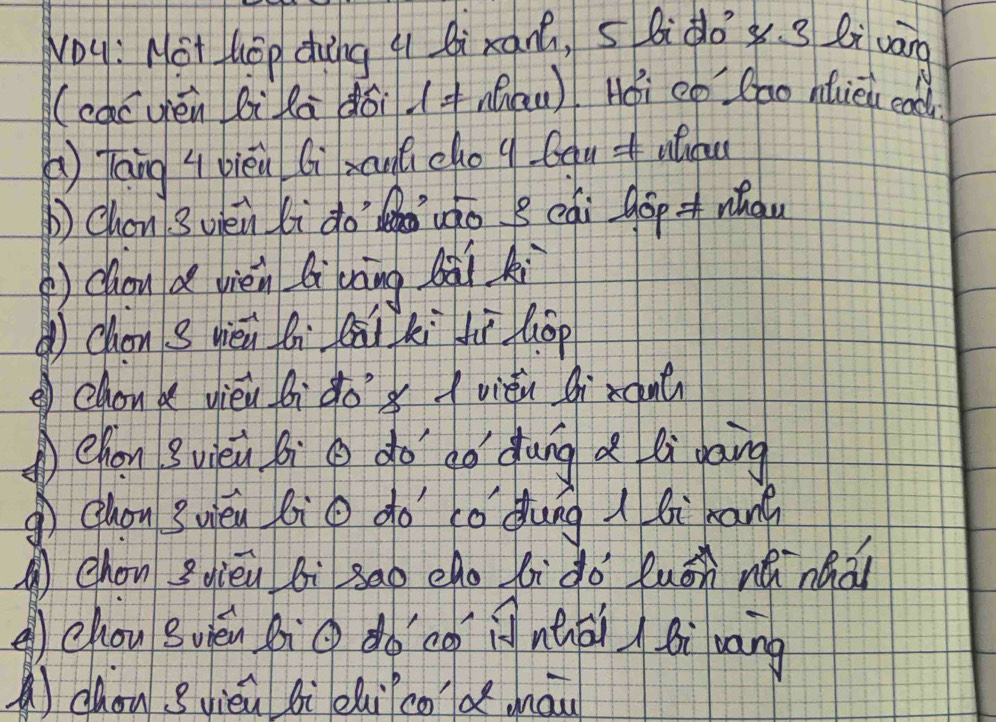 VD4: Một hộp đựng 4 bi xanh, 5 bi đỏ & 3 bi vàng
(các viên bi là đôi 1 ≠ nhau). Hỏi có bao nhiêu cách:
a) Tặng 4 viên bi xanh cho 4 bạn ≠ nhau
b) Chọn 3 viên bi đỏ vào 3 cái hộp ≠ nhau
c) Chọn 2 viên bi vàng bất kì
d) Chọn 3 viên bi bất kì từ hộp
e) Chọn 2 viên bi đỏ & 1 viên bi xanh
f) Chọn 3 viên bi ⊙ đó có đúng 2 bi vàng
g) Chọn 3 viên bi ⊙ đó có đúng 1 bi xanh
h) Chọn 3 viên bi sao cho bi đỏ luôn nh nhất
e) Chọn 3 viên bi ⊙ đó có ít nhất 1 bi vàng
h) Chọn 3 viên bi chỉ có 2 màu